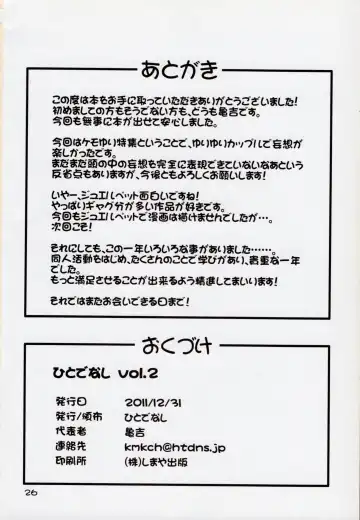 あとがき
この度は本をお手に取っていただきありがとうございました!
初めましての方もそうでない方も、どうも亀吉です。
今回も無事に本が出せて安心しました。
今回はケモゆり特集ということで、ゆりゆりカップルで妄想が
楽しかったです。
まだまだ頭の中の妄想を完全に表現できていないなあという
反省点もありますが、今後ともよろしくお願いします!
いやー、ジュエルペット面白いですね!
やっぱりギャグ分が多い作品が好きです。
今回もジュエルペットで漫画は描けませんでしたが…。
次回こそ!
それにしても、この一年いろいろな事がありました……。
同人活動をはじめ、たくさんのことで学びがあり、貴重な一年
でした。
もっと満足させることが出来るよう精進してまいります!
それではまたお会いできる日まで!
おくづけ
ひとでなし vol.2
発行日 2011/12/31
発行/頒布 ひとでなし
代表者 亀吉
連絡先 kmkch@htdns.jp
印刷所 (株)しまや出版
26